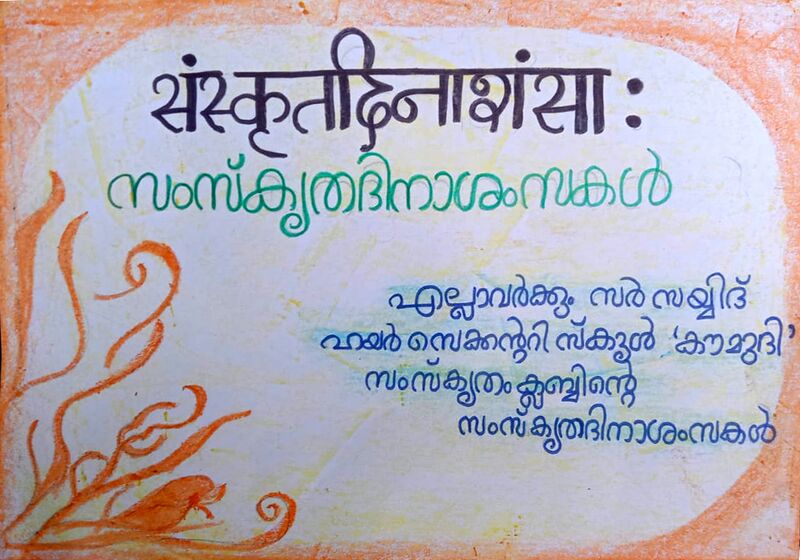 संस्कृतदिनाशंसा:
സംസ്കൃതദിനാശംസകൾ
എല്ലാവർക്കും സർ സയ്യിദ്
ഹയർ സെക്കന്ററി സ്കൂൾ ‘കൗമുദി’
സംസ്കൃതം ക്ലബ്ബിന്റെ
സംസ്കൃതദിനാശംസകൾ